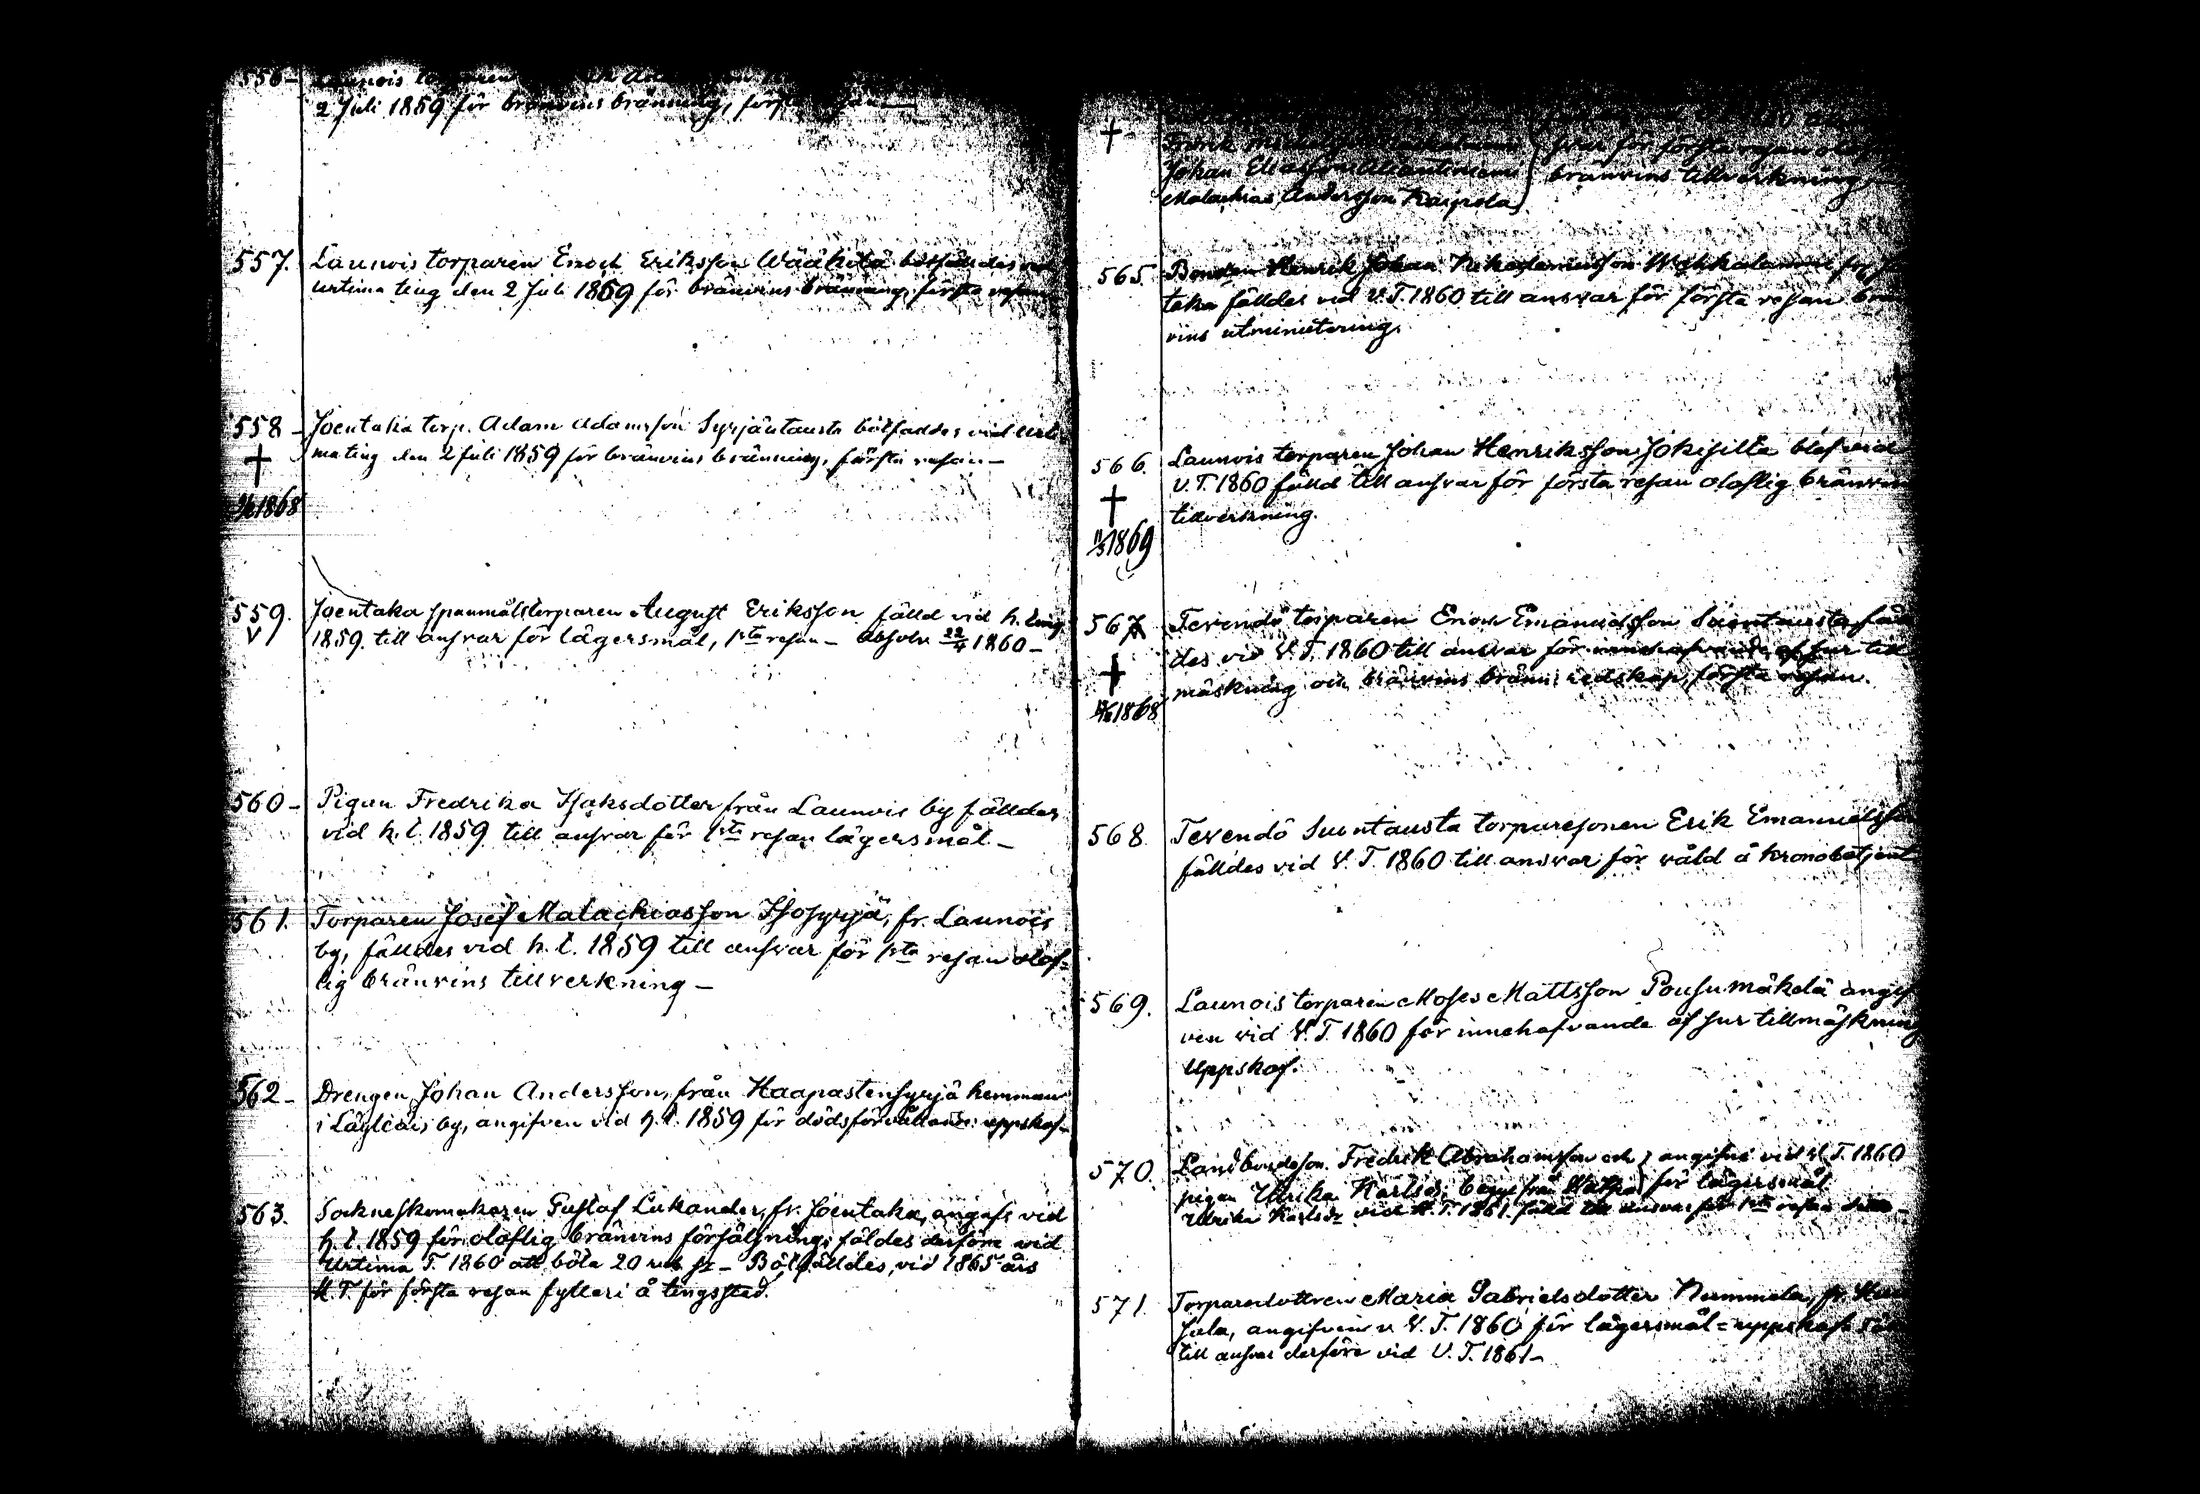 556- Launois torparen
2 Juli 1859 för bränvins bränning, första resan -
557. Launois torparen Enoch Eriksson Wääkitä bötfälldes vid
urtima ting den 2 Juli 1859 för bränvins bränning, första resan
558 - Joentaka torp. Adam Adamsson Syrjäntausta bötfälldes vid urti-
✝ ma ting den 2 Juli 1859 för bränvins bränning, första resan -
1868
559. Joentaka spanmålstorparen August Eriksson fälld vid h. ting
V 1859. till ansvar för lägersmål, 1sta resan - Absolv 22/4 1860 -
560 - Pigan Fredrika Isaksdotter från Launois by fälldes
vid h. t. 1859 till ansvar för 1sta resan lägersmål -
561. Torparen Josef Malachiasson Isosyrjä, fr. Launois
by, fälldes vid h. t. 1859 till ansvar för 1sta resan olof-
lig bränvins tillverkning -
562 - Drengen Johan Andersson, från Haapastensyrjä hemman
i Läyliäis by, angifven vid h. t. 1859 för dödsförvållande: uppskof -
563. Sockneskomakaren Gustaf Lukander, fr. Joentaka, angafs vid
h. t. 1859 för oloflig bränvins försäljning; fäldes derföre vid
Urtima T. 1860 att böta 20 rub sr - Bötfälldes, vid 1865 års
H. T. för första resan fylleri å tingsstad.
✝
svar för första resan olof
Johan Eliasson bränvins tillverkning
Malachias Andersson Kaipola
565. Bonden Henrik Johan Nikodemusson Wahkalammi fr. Jo
taka fälldes vid V. T. 1860 till ansvar för första resan brän
vins utminutering.
566. Launois torparen Johan Henriksson Jokisilta blef vid
✝ V. T. 1860 fälld till ansvar för första resan oloflig bränvins
tillverkning.
1869
567 Tevendö torparen Enok Emanuelsson Suontausta fäll
des vid V. T. 1860 till ansvar för innehafvande af sur till
✝ mäskning och bränvins bränn: redskap, första resan.
1868
568. Tevendö Suontausta torparesonen Erik Emanuelsson
fälldes vid V. T. 1860 till ansvar för våld å kronobetjent
569. Launois torparen Moses Mattsson Pousunmäkelä angif
ven vid V. T. 1860 för innehafvande af sur tillmäskning
Uppskof.
570. Landbondeson. Fredrik Abrahamsson och } angifne vid V. T. 1860
pigan Ulrika Karlsdr, begge från för lägersmål
Ulrika Karlsdr vid V. T. 1861. fälld till ansvar för 1sta resan
571. Torparedottren Maria Gabrielsdotter Nummela, fr.
jula, angifven v. V. T. 1860 för lägersmål = uppskof.
till ansvar derföre vid V. T. 1861 -